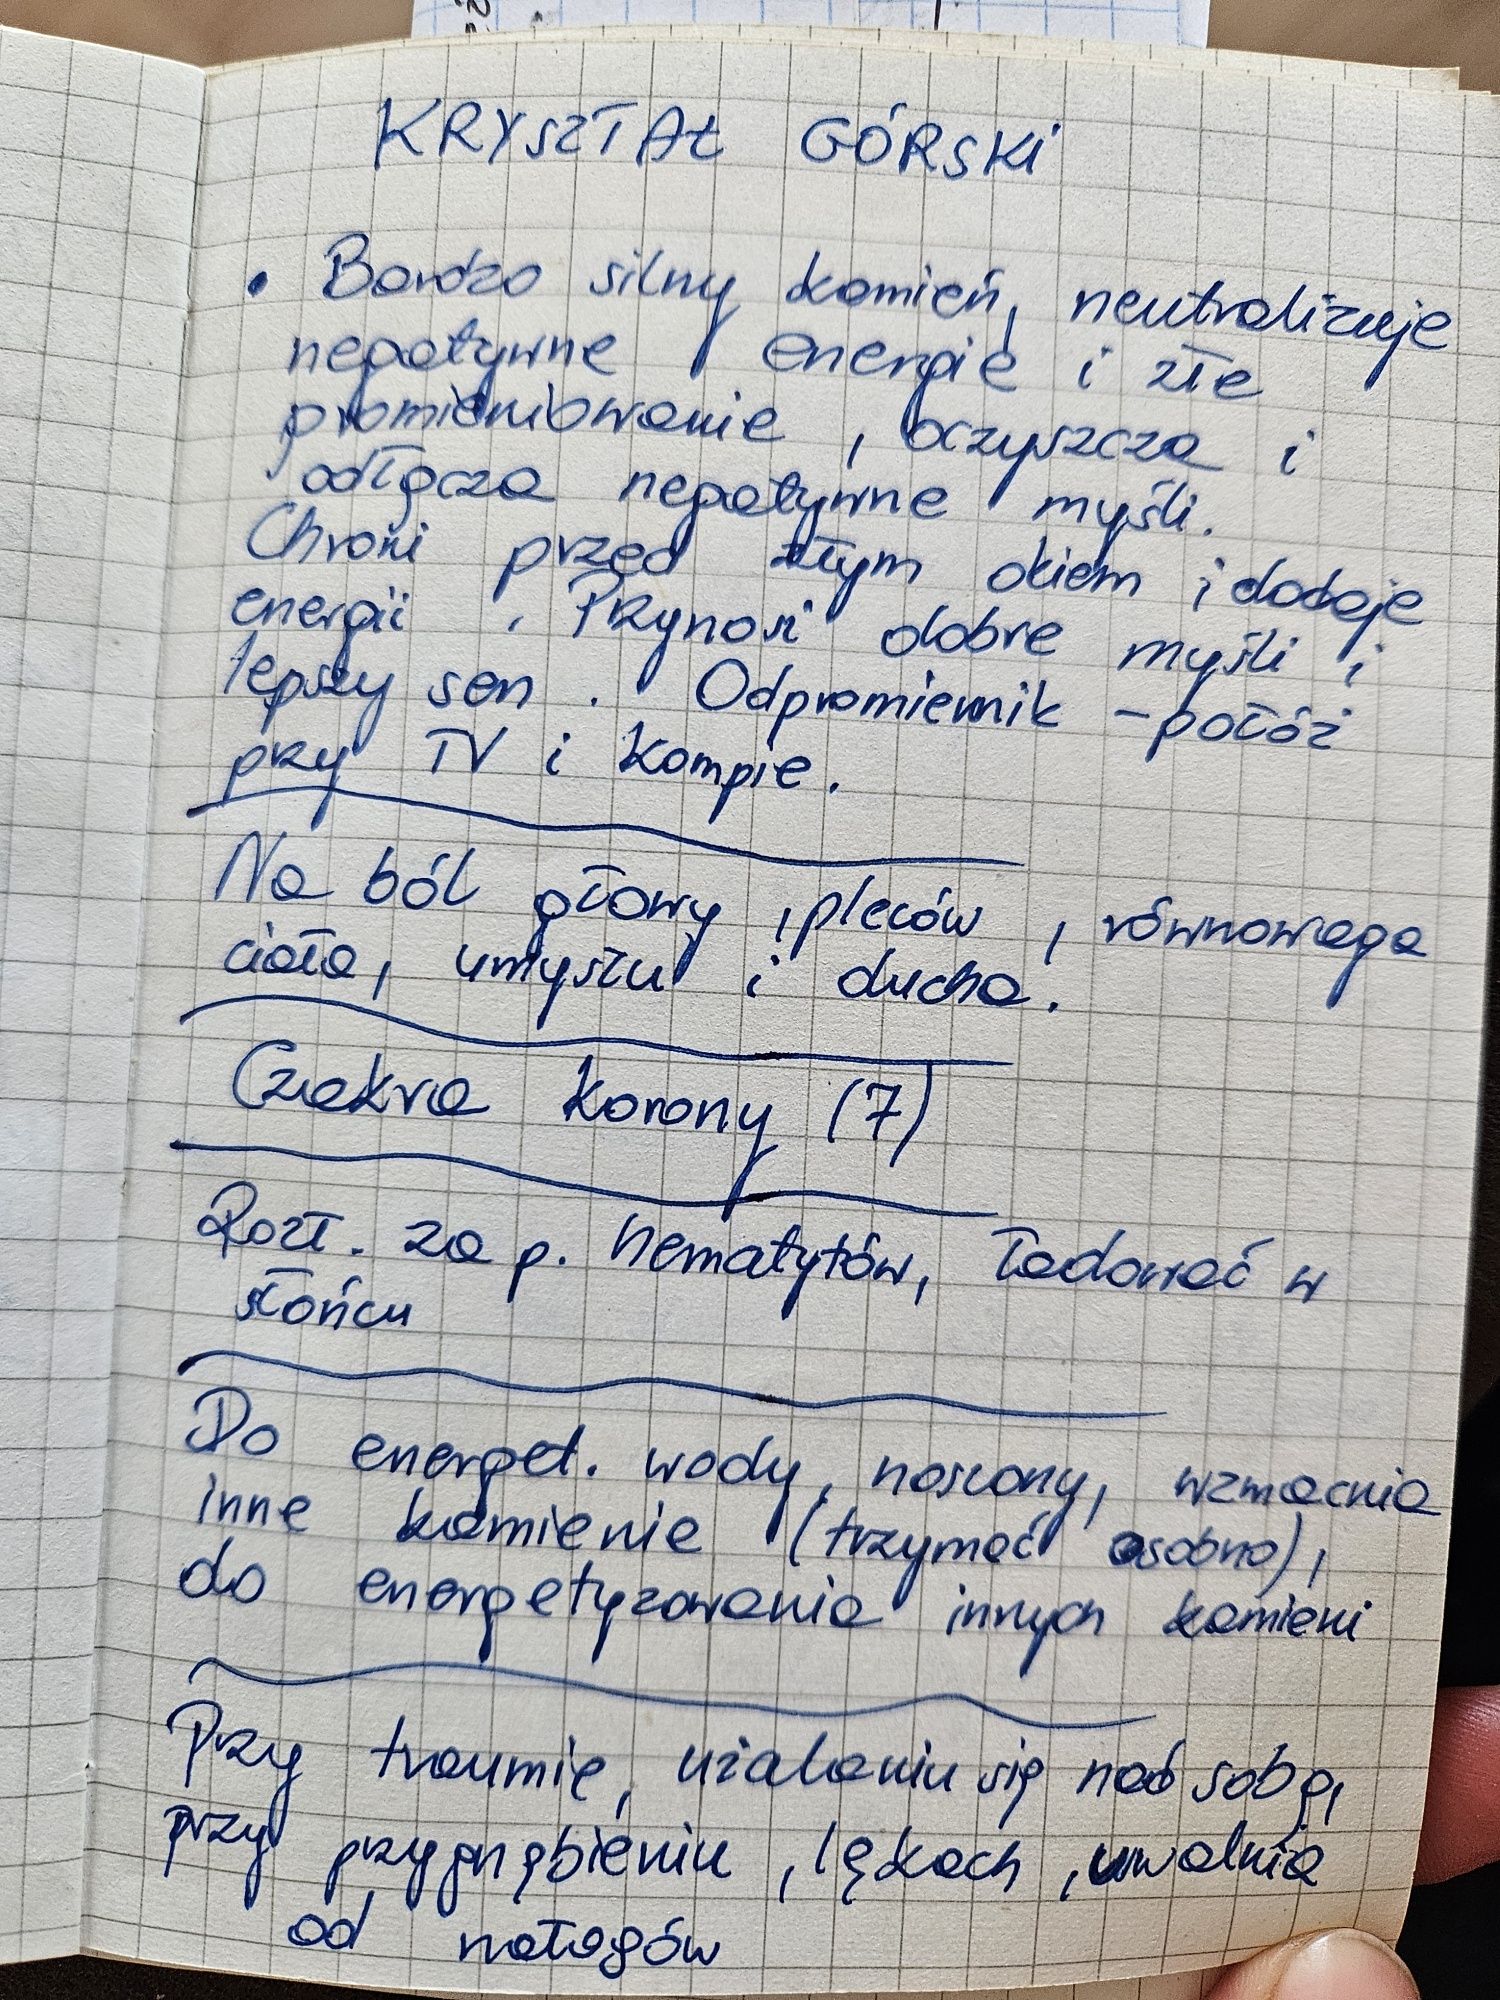 KRYSZTAŁ GÓRSKI
• Bardzo silny kamień, neutralizuje
negatywne energie i złe
promieniowanie, oczyszcza i
odłącza negatywne myśli.
Chroni przed złym okiem i dodaje
energii. Przynosi dobre myśli i
lepszy sen. Odpromiennik - połóż
przy TV i kompie.
Na ból głowy, pleców, równowaga
ciała, umysłu i ducha.
Czakra korony (7)
Rozł. za p. hematytów, ładować w
słońcu
Do energet. wody, noszony, wzmacnia
inne kamienie (trzymać osobno),
do energetyzowania innych kamieni
Przy traumie, użalaniu się nad sobą,
przy przygnębieniu, lękach, uwalnia
od nałogów